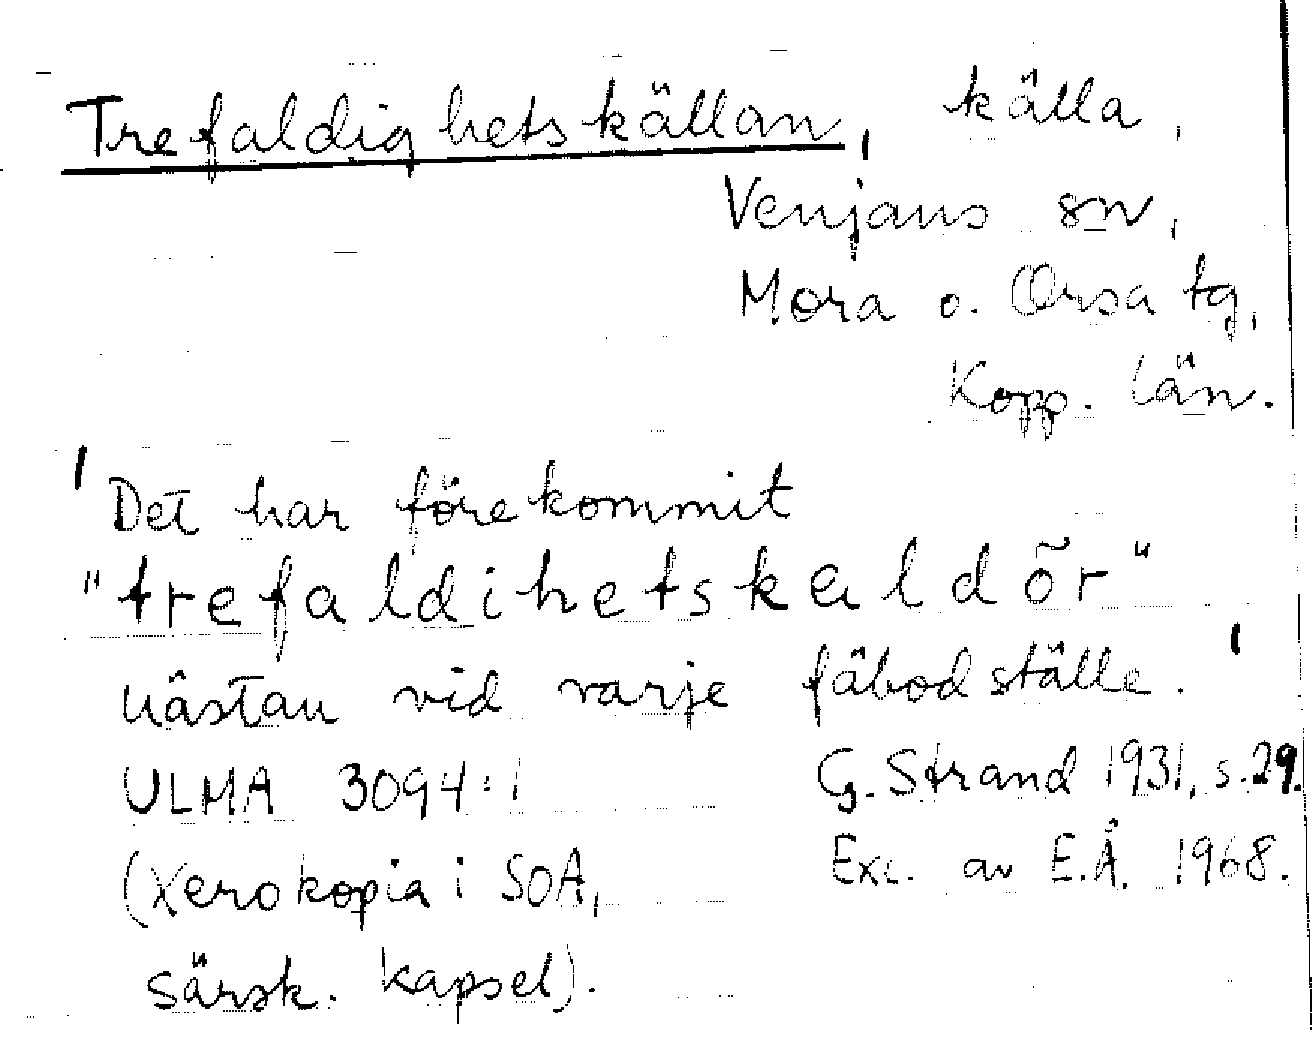 Trefaldighetskällan, källa,
Venjans sn,
Mora o. Orsa tg,
Kopp. län.
'Det har förekommit
"trefaldihetskaldõr"
nästan vid varje fäbodställe.'
ULMA 3094:1 G. Strand 1931, s. 29.
(Xerokopia i SOA, Exc. av E.Å. 1968.
särsk. kapsel).